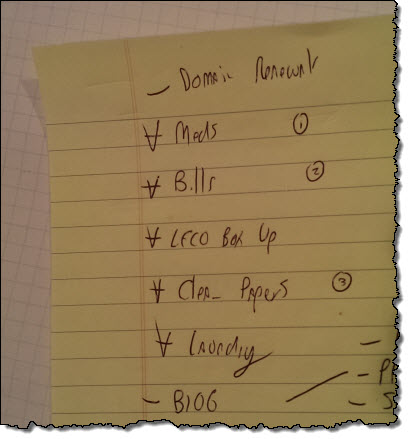 – Domain Renewal
Meds ①
Bills ②
LEGO Box Up
Clean Papers ③
Laundry
– BLOG –
– P
– S